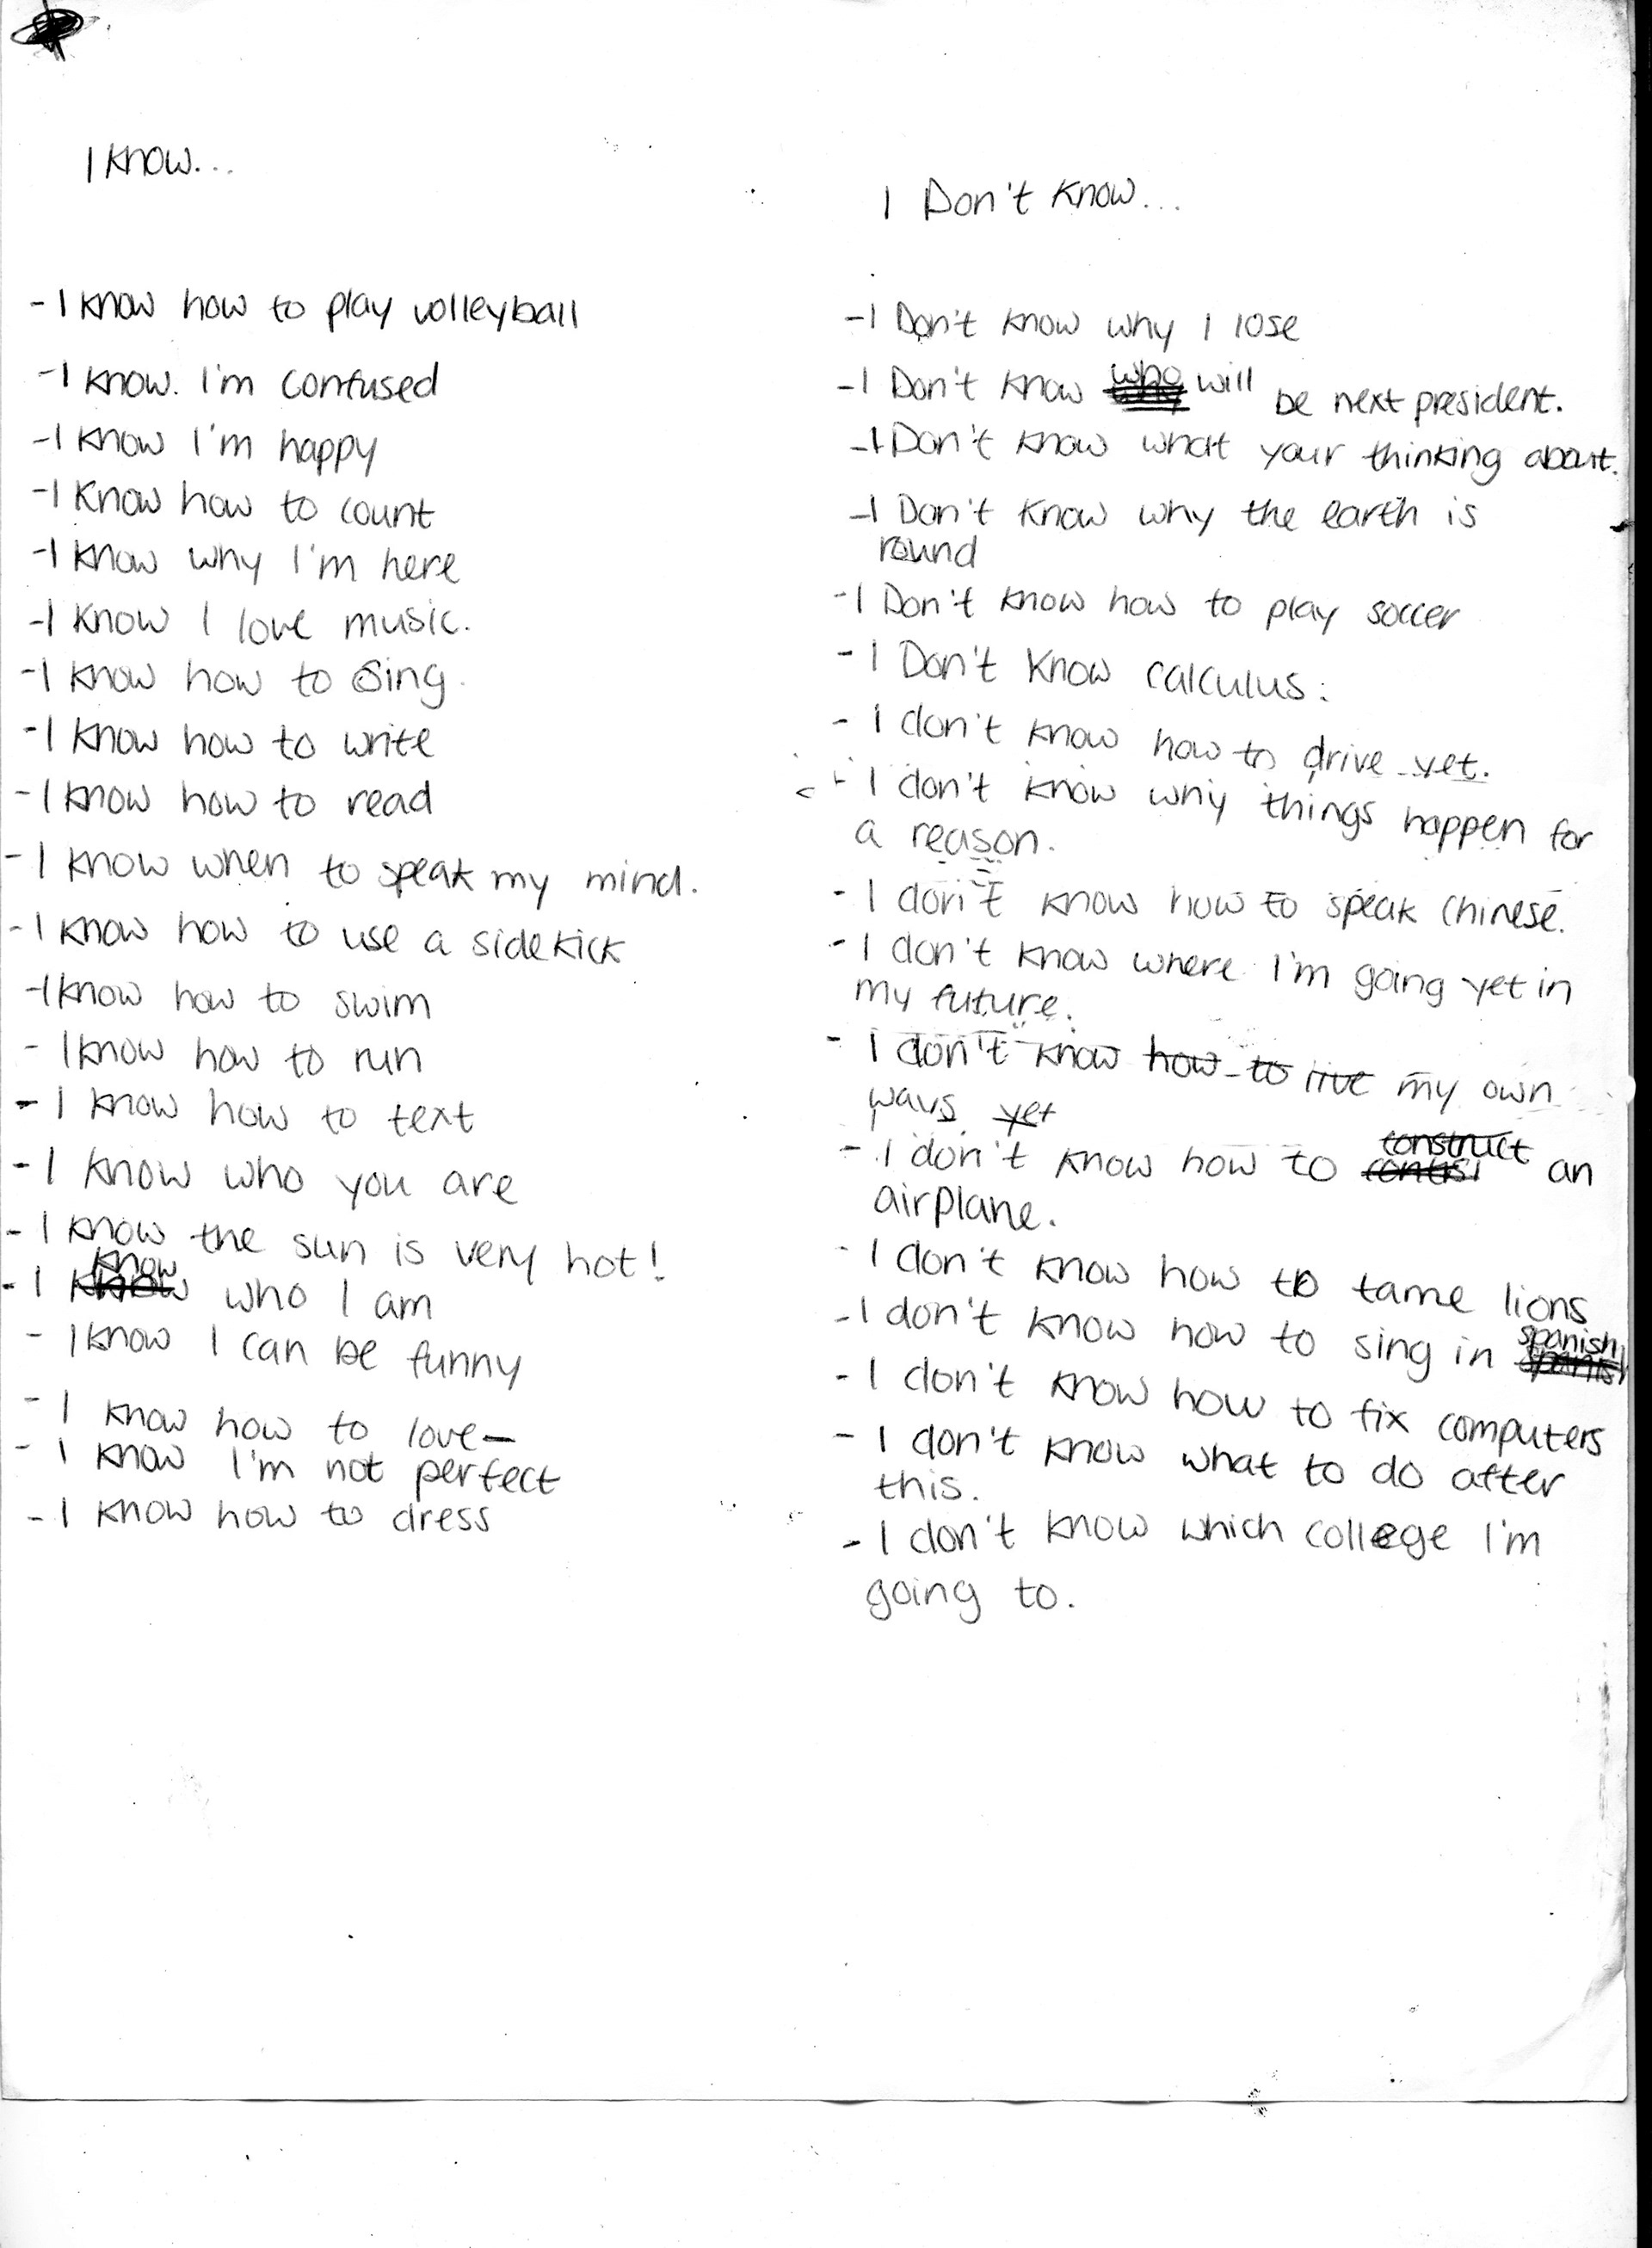 I know...
- I know how to play volleyball
- I know. I'm confused
- I know I'm happy
- I know how to count
- I know why I'm here
- I know I love music.
- I know how to sing.
- I know how to write
- I know how to read
- I know when to speak my mind.
- I know how to use a sidekick
- I know how to swim
- I know how to run
- I know how to text
- I know who you are
- I know the sun is very hot!
- I know who I am
- I know I can be funny
- I know how to love-
- I know I'm not perfect
- I know how to dress
I Don't know...
- I Don't know why I lose
- I Don't know who will be next president.
- I Don't know what your thinking about.
- I Don't know why the earth is
round
- I Don't know how to play soccer
- I Don't know calculus.
- I don't know how to drive yet.
- I don't know why things happen for
a reason.
- I don't know how to speak chinese.
- I don't know where I'm going yet in
my future.
- I don't know how to live my own
ways yet
- I don't know how to construct an
airplane.
- I don't know how to tame lions
- I don't know how to sing in spanish
- I don't know how to fix computers
- I don't know what to do after
this.
- I don't know which college I'm
going to.